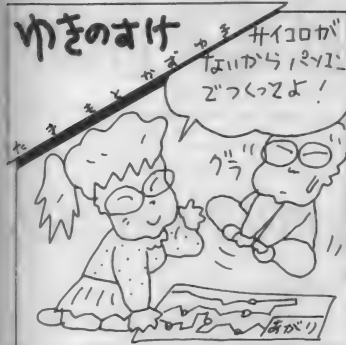 ゆきのすけ
たまもとかずゆき
サイコロが
ないからパソコン
でつくってよ！
グラ
あがり